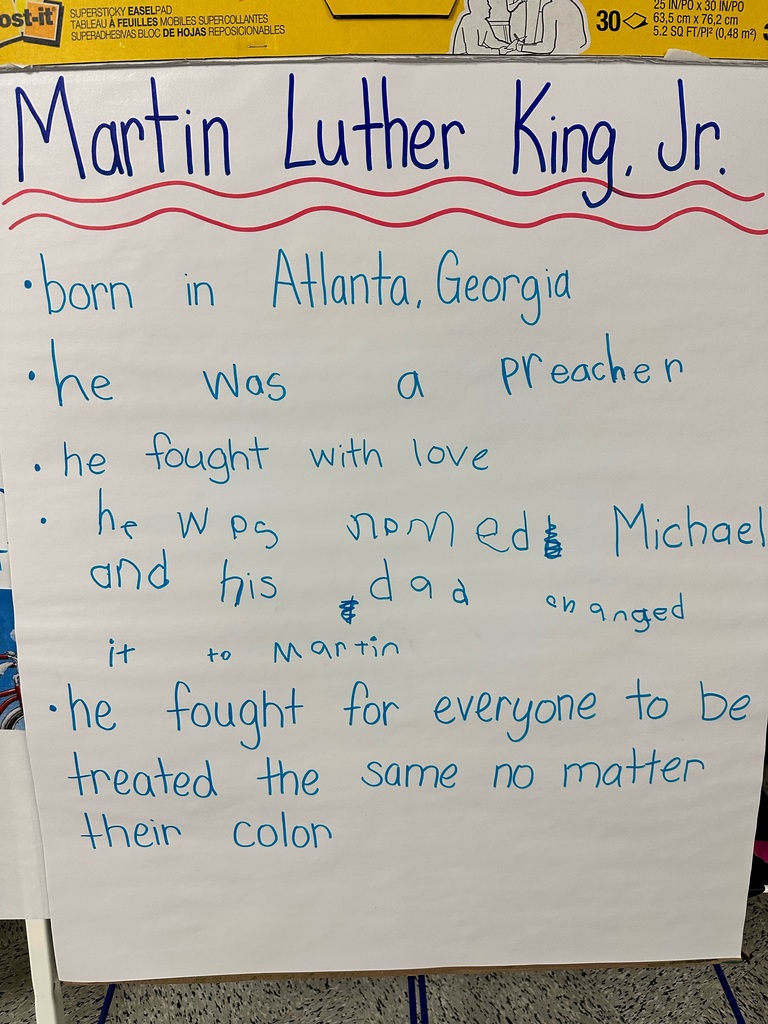 ost-it
SUPERSTICKY EASELPAD
TABLEAU À FEUILLES MOBILES SUPERCOLLANTES
SUPERADHESIVAS BLOC DE HOJAS REPOSICIONABLES
30
25 IN/PO x 30 IN/PO
63,5 cm x 76,2 cm
5.2 SQ FT/PI² (0,48 m²)
Martin Luther King, Jr.
• born in Atlanta, Georgia
• he was a preacher
• he fought with love
• he was named Michael
and his dad changed
it to Martin
• he fought for everyone to be
treated the same no matter
their color